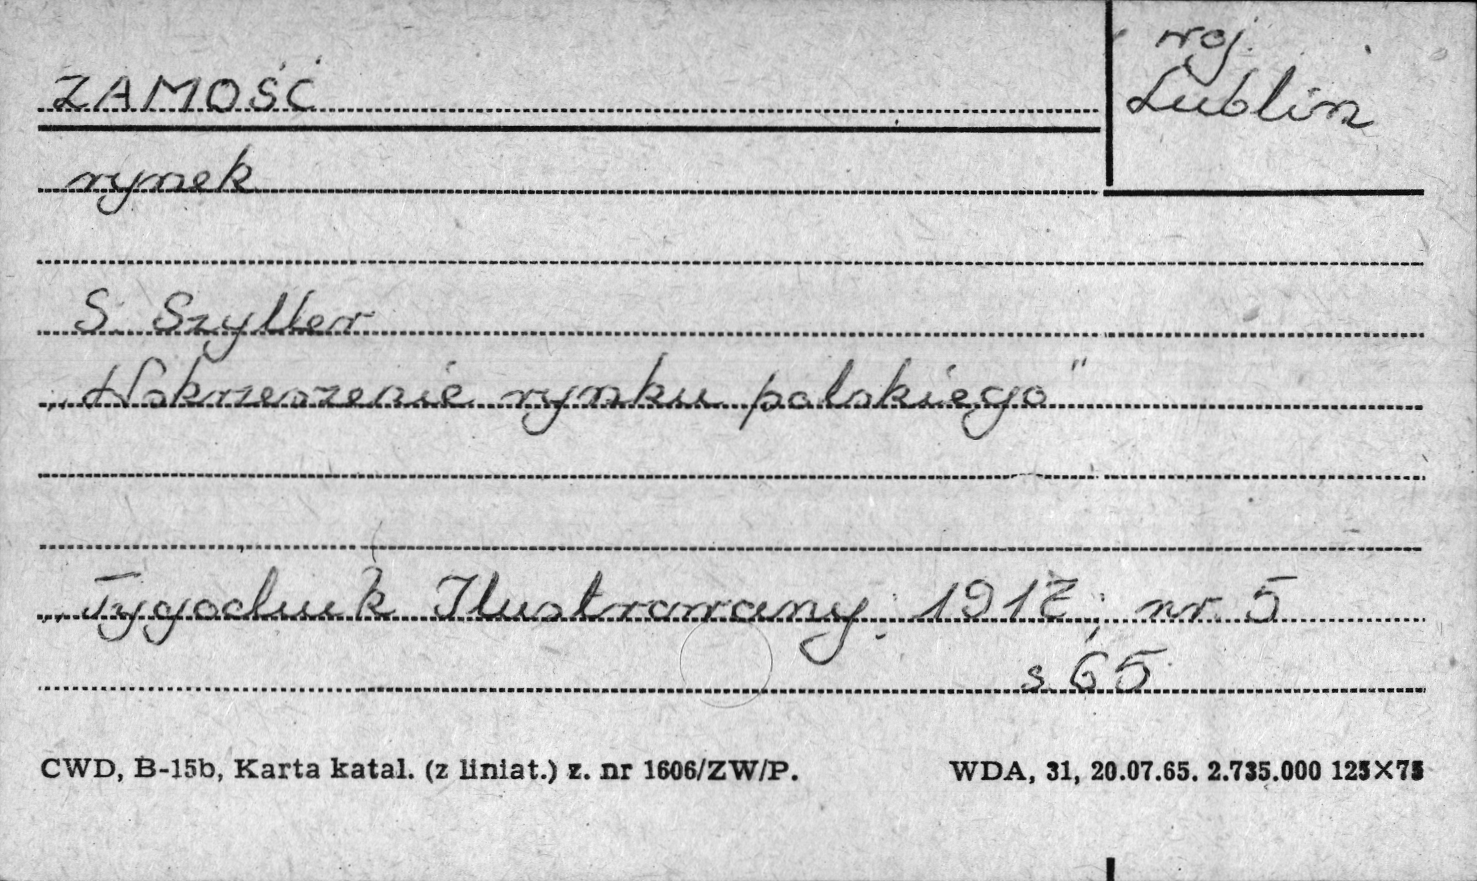 ZAMOŚĆ
woj.
Lublin
rynek
S. Szyller
„Wskrzeszenie rynku polskiego"
„Tygodnik Ilustrowany: 1917; nr. 5
s. 65
CWD, B-15b, Karta katal. (z liniat.) z. nr 1606/ZW/P.
WDA, 31, 20.07.65. 2.735.000 125×75